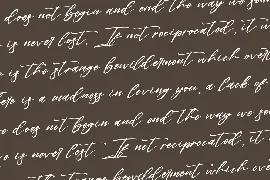 does not begin and end the way we
is never lost. If not reciprocated, it w
is the strange bewilderment which over
ere is a madness in loving you, a lack of
does not begin and end the way we se
is never lost. If not reciprocated, it
is the strange bewilderment which ove